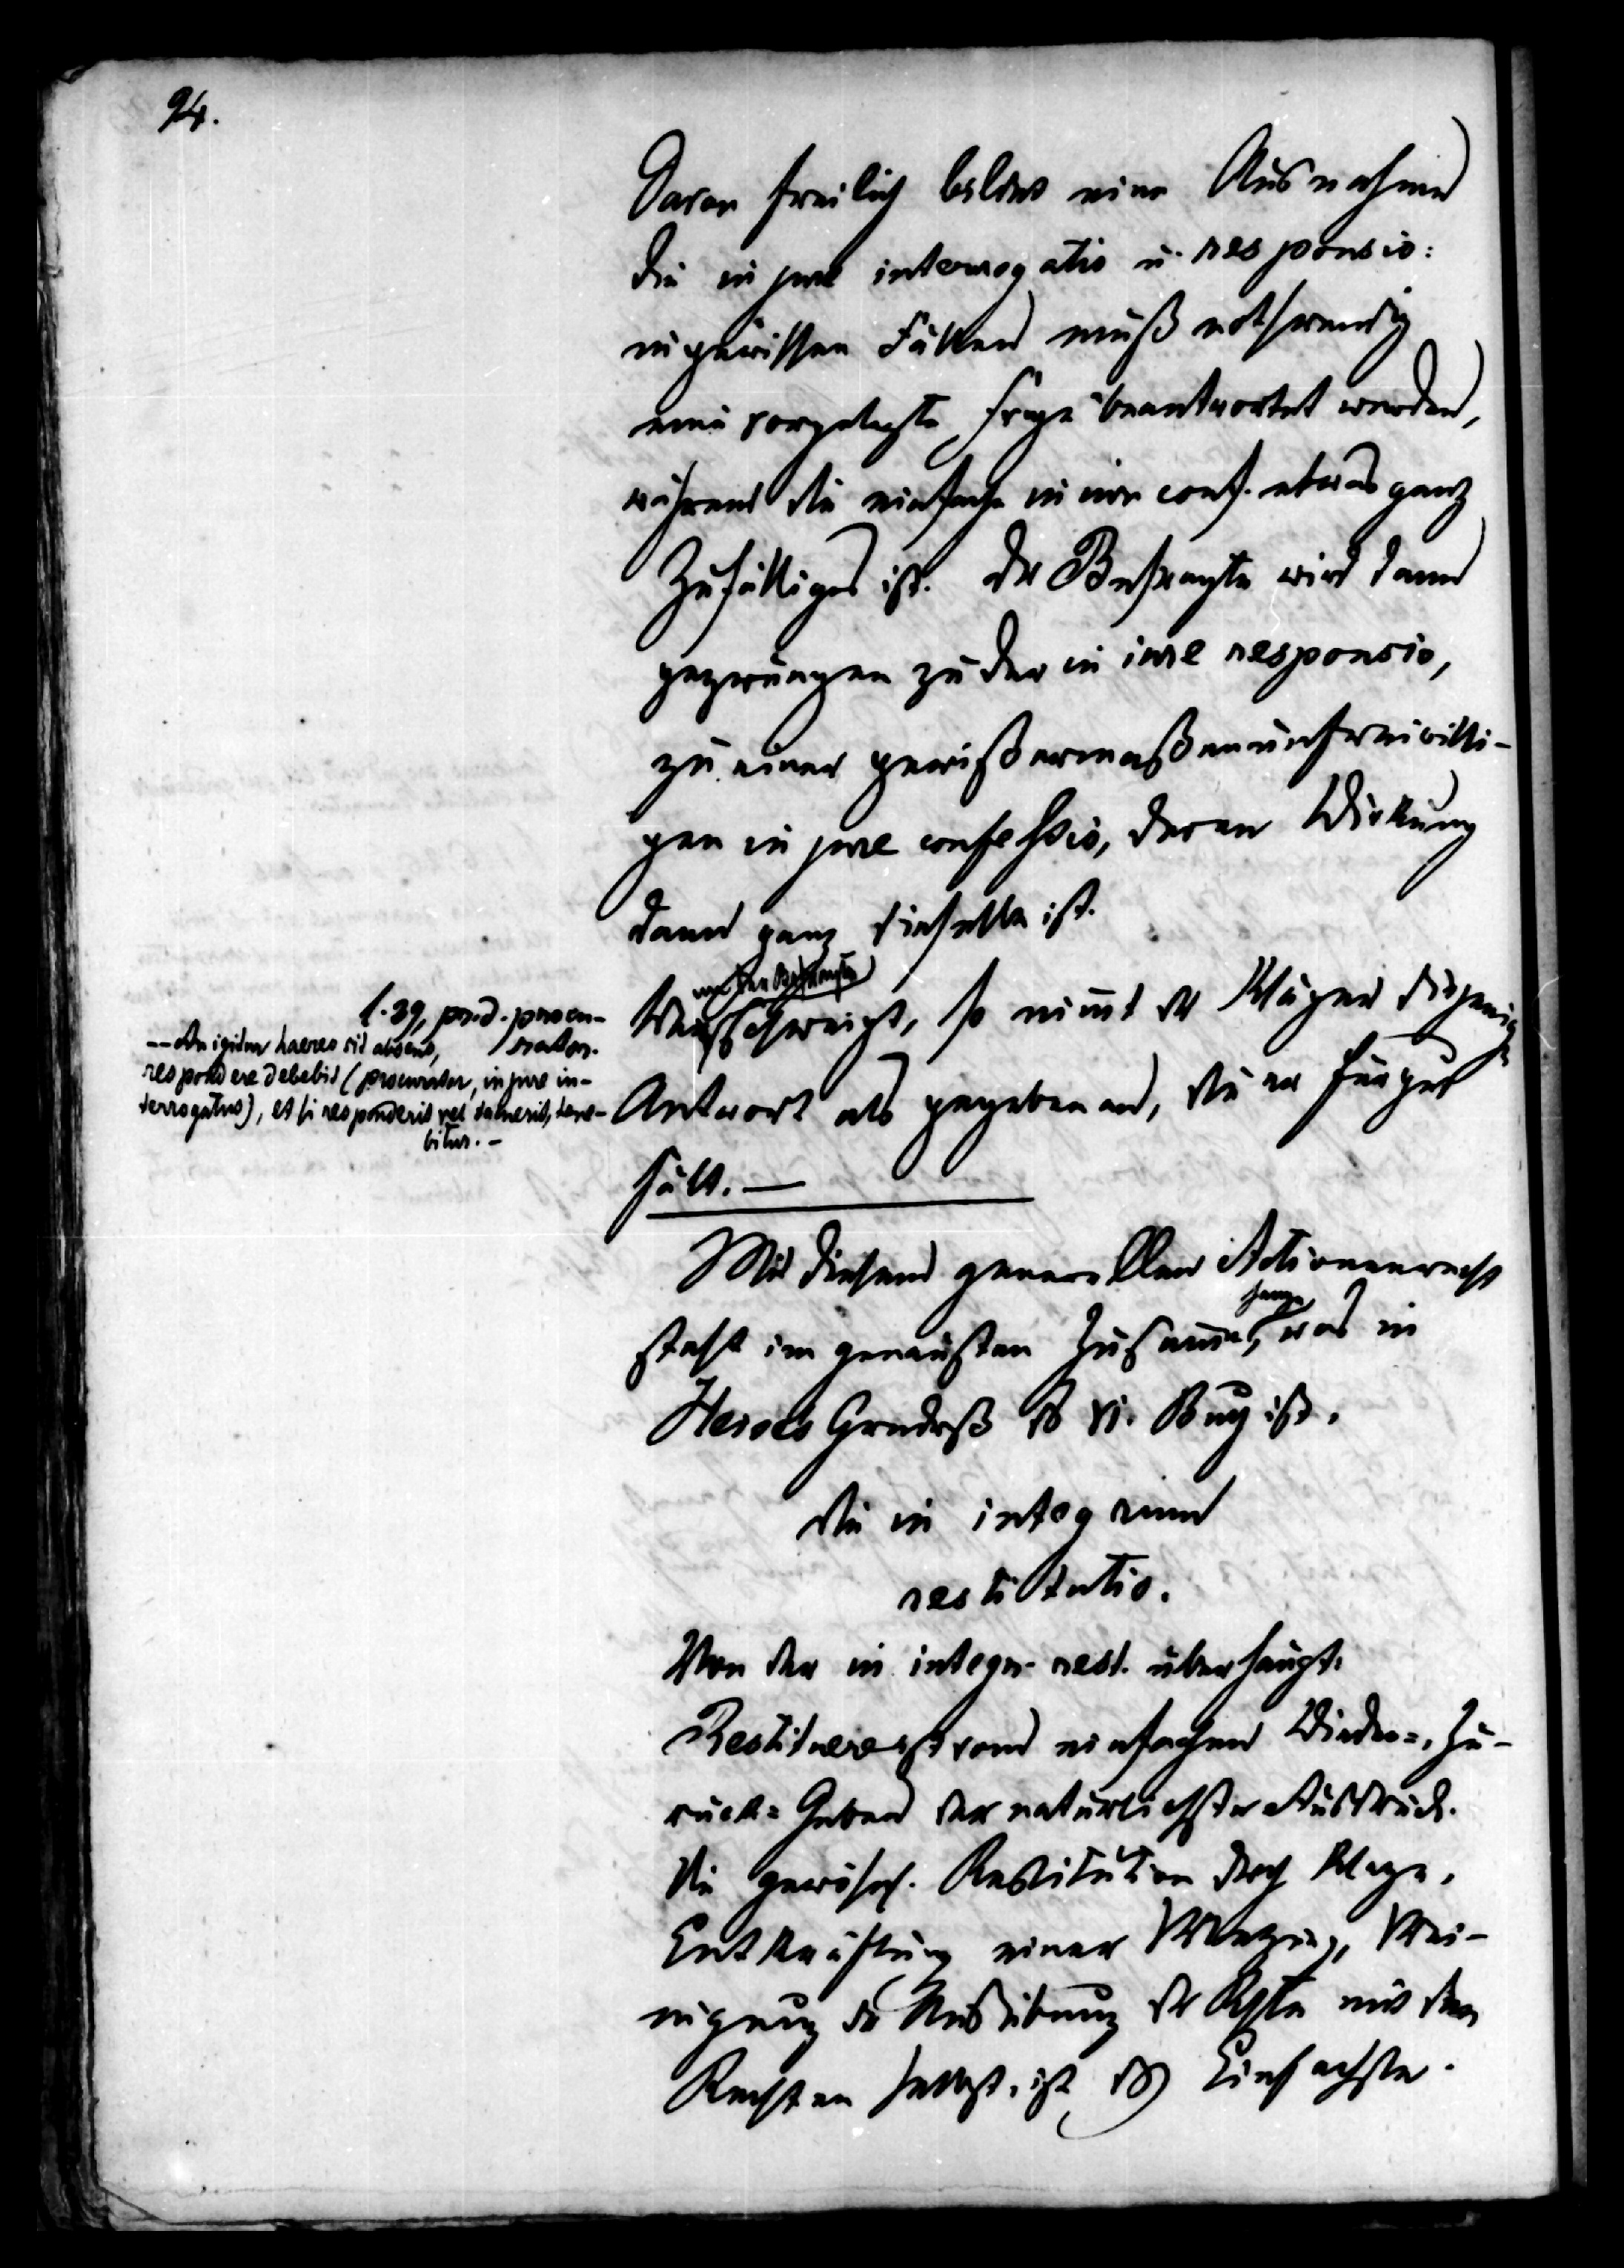 94.
Davon freilich bildet eine Ausnahme
die in jure interrogatio u. responsio:
in gewissen Fällen muß nothwendig
eine vorgelegte Frage beantwortet werden,
während die einfache in iure conf. etwas ganz
Zufälliges ist. Der Befragte wird dann
gezwungen zu der in iure responsio,
zu einer gewißermaßen unfreiwilli-
gen in jure confessio, deren Wirkung
dann ganz dieselbe ist.
Wenn der Befragte
schweigt, so nimmt der Kläger diejenige
Antwort als gegeben an, die er für gut
hält. —
l. 39, pr. d. procu-
rator.
-- An igitur haeres sit absens,
respondere debebit (procurator, in jure in-
terrogatus), et si responderit vel tacuerit, tene-
bitur. -
Mit diesem generellen Actionenrecht
steht im genausten Zusammenhange, was in
Heises Grundriß das VI. Buch ist.
Die in integrum
restitutio.
Von der in integr. rest. überhaupt.
Restituere ist vom einfachen Wieder=, Zu-
rück=Geben der natürlichste Ausdruck.
Die gewöhnl. Restitution durch Klage,
Entkräftung einer
nigung der Ausübung der Rechte mit den
Rechten selbst, ist das Einfachste.